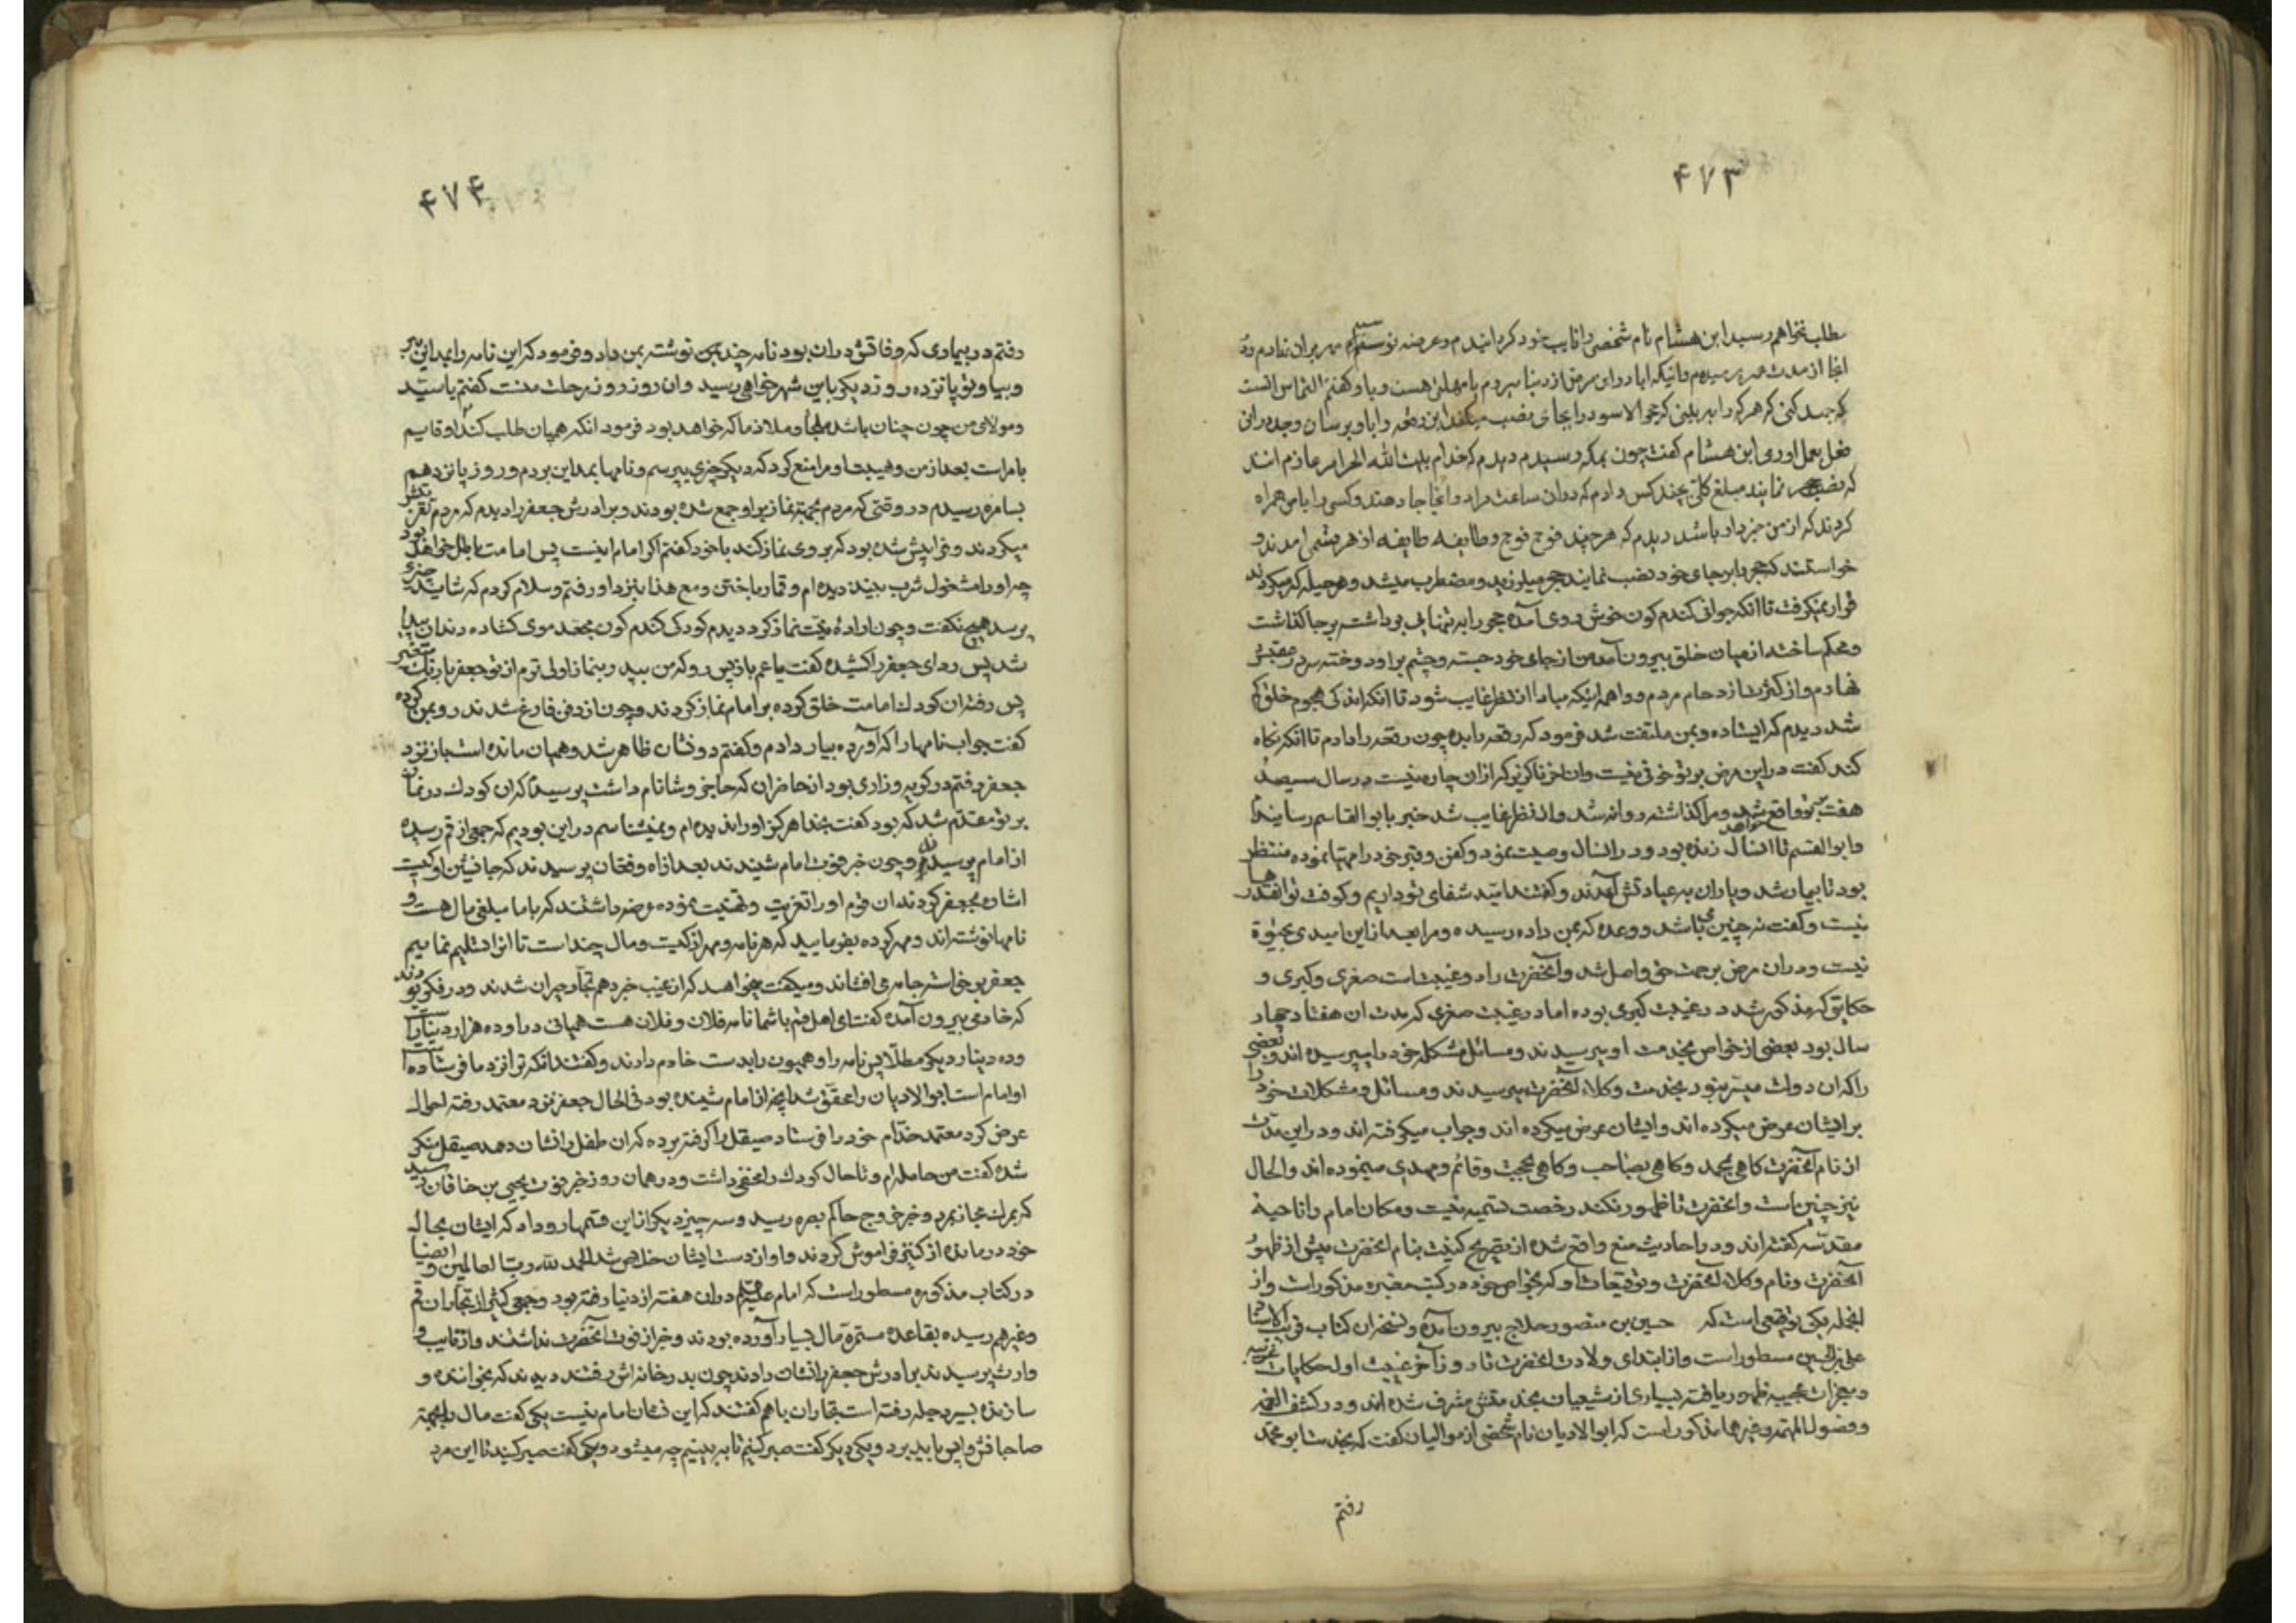 ۴۷۳
مطلب نخواهم رسید ابن هشام نام شخصی را نایب خود کردانیدم و عریضه نوشتم مهر بران نهادم و در
انجا از مدت عمر پرسیدم و انیکه ایا در این مرض از دنیا میردم یا مهلتی هست و باو کفتم التماس انست
که جهد کنی که هر که را به بلینی که حجر الاسود را بجای نصب میکند این رقعه را باو برسان و جده در این
فعل بعمل اوری ابن هشام کفت چون بمکه رسیدم دیدم که خدام بیت الله الحرام عازم اند
که نصب حجر نمایند مبلغ کلی بچند کس دادم که دران ساعت مراد و انجا جا دهند و کسی را با من همراه
کردند که از من خبردار باشد دیدم که هر چند فوج فوج و طایفه طایفه از هر قسمی امدند و
خواستند که حجر را بر جای خود نصب نمایند حجر میلرزید و مضطرب میشد و هر حیله که میکردند
قرار نمیکرفت تا انکه جوانی کندم کون خوش روی آمده حجر را به تنهایی برداشته بر جا کذاشت
و محکم ساخته از میان خلق بیرون آمد من از جای خود جسته و چشم بر او دوخته سر در عقبش
نهادم و از کثرت ازدحام مردم و واهمه اینکه مبادا از نظر غایب شود تا انکه اندکی هجوم خلق کم
شد دیدم که ایستاده و بمن ملتفت شد فرمود که رقعه را بده چون رقعه را دادم تا انکه نکاه
کند کفت در این مرض بر تو خوفی نیست و ان اخر ناکزیر که از ان چاره نیست در سال سیصد
هفت بر تو واقع خواهد شد و مرا کذاشته روانه شد و از نظر غایب شد خبر بابو القاسم رسانیدم
و ابو القسم تا انسال زنده بود و در انسال وصیت نمود و کفن و قبر خود را مهیا نموده منتظر
بود تا بیمار شد و یاران به عیادتش آمدند و کفتند امید شفای تو داریم و کوفت تو انقدرها
نیست و کفت نه چنین می باشد و وعده که بمن داده رسیده و مرا بعد از این امیدی بحیوة
نیست و در ان مرض برحمت حق واصل شد و آنحضرت را دو غیبت است صغری و کبری و
حکایتی که مذکور شد در غیبت کبری بوده اما در غیبت صغری که مدت ان هفتاد چهار
سال بود بعضی از خواص بخدمت او میرسیدند و مسائل مشکله خود را میپرسیده اند و بعضی
را که ان دولت میسر نبود بخدمت وکلاء آنحضرت میرسیدند و مسائل و مشکلات خود را
بر ایشان عرض میکرده اند و ایشان عرض میکرده اند و جواب میکرفته اند و در این مدت
از نام آنحضرت کاهی بمحمد و کاهی بصاحب و کاهی بحجت و قائم و مهدی مینموده اند و الحال
نیز چنین است و انحضرت تا ظهور نکند رخصت تسمیه نیست و مکان امام را ناحیهٔ
مقدسه کفته اند و در احادیث منع واقع شده از تصریح کنیت بنام انحضرت پیش از ظهور
آنحضرت و نام وکلاء آنحضرت و توقیعات او که بخواص خود در کتب معتبره مذکور است و از
انجمله یکی توقیعی است که حسین بن منصور حلاج بیرون آمده و نسخه ان کتاب قرب الاسناد
علی بن الحسین مسطور است و از ابتدای ولادت انحضرت تا روز آخر غیبت اول حکایات غریبه
و معجزات عجیبه ظهور یافته بسیاری از شیعیان بخدمتش مشرف شده اند و در کشف الغمه
و فصول المهمه و غیرها مذکور است که ابو الادیان نام شخصی از موالیان کفت که بخدمت ابو محمد
رفتم
۴۷۴
رفتم در بیماری که وفاتش دران بود نامه چند بمن نوشته بمن داد و فرمود که این نامه را بمداین ببر
و بیا و تو پانزده روز دیکر باین شهر خواهی رسید و ان روز روز رحلت منست کفتم یا سیدی
و مولای من چون چنان باشد ملجأ و ملاذ ما که خواهد بود فرمود انکه همیان طلب کند او قایم
بامر است بعد از من و هیبت او مرا منع کرد که دیکر چیزی بپرسم و نامها بمداین بردم و روز پانزدهم
بسامره رسیدم در وقتی که مردم بجهة نماز بر او جمع شده بودند و برادرش جعفر را دیدم که مردم تعزیتش
میکردند و فرا پیش شده بود که بر وی نماز کند با خود کفتم اکر امام اینست پس امامت باطل خواهد بود
چه او را مشغول شرب نبیذ دیده ام و قمار باختن و مع هذا بنزد او رفتم و سلام کردم که شاید چیزی
پرسد هیچ نکفت و چون اراده نیت نماز کرد دیدم کودکی کندم کون مجعد موی کشاده دندان پیدا
شد پس ردای جعفر را کشیده کفت یا عم باز پس رو که من به پدر و بنماز اولی ترم از تو جعفر با رنک متغیر
پس رفته ان کودک امامت خلق کرده بر امام نماز کردند و چون از دفن فارغ شدند رو بمن کرده
کفت جواب نامها را که آورده بیار دادم و کفتم دو نشان ظاهر شد و همیان مانده است باز نزد
جعفر رفتم در کریه و زاری بود از حاضران که حاجز وشا نام داشت پرسید که ان کودک در نماز
بر تو مقدم شد که بود کفت بخدا هرکز او را ندیده ام و نمیشناسم در این بودیم که جمعی از قم رسیده
از امام پرسیدند و چون خبر فوت امام شنیدند بعد از آه و فغان پرسیدند که جانشین او کیست
اشاره بجعفر کردند ان قوم او را تعزیت و تهنیت نموده عرضه داشتند که با ما مبلغی مال هست و
نامها نوشته اند و مهر کرده بفرمایید که هر نامه و مهر از کیست و مال چند است تا انرا تسلیم نماییم
جعفر برخاسته جامه می افشاند و میکفت میخواهد که از غیب خبر دهم تجار حیران شدند و در فکر بودند
که خادمی بیرون آمده کفت ای اهل قم با شما نامه فلان و فلان هست همیانی در او ده هزار دینار است
و ده دینار دیکر مطلّا پس نامه را و همیون را بدست خادم دادند و کفتند انکه ترا نزد ما فرستاده است
او امام است ابو الادیان را محقق شد انچه از امام شنیده بود فی الحال جعفر نزد معتمد رفته احوال
عرض کرد معتمد خدّام خود را فرستاد صیقل را کرفته برده که ان طفل را نشان دهد صیقل منکر
شده کفت من حامله ام و تا حال کودک را مخفی داشت و در همان روز خبر فوت یحیی بن خاقان رسید
که بمرک مفاجا بمرد و خبر خروج حاکم بصره رسید و سه چیز دیکر از این قسمها رو داد که ایشان بحال
خود درمانده از کنیز فراموش کردند و او از دست ایشان خلاص شد الحمد لله رب العالمین و ایضا
در کتاب مذکوره مسطور است که امام علیه السلام دران هفته از دنیا رفته بود و جمعی کثیر از تجاران قم
و غیرهم رسیده بقاعده مستمره مال بسیار آورده بودند و خبر از فوت آنحضرت نداشتند و از نایب و
وارث پرسیدند برادرش جعفر را نشان دادند چون بدر خانه اش رفتند دیدند که بخواننده و
سازنده بسیر دجله رفته است تجاران با هم کفتند که این نشان امام نیست یکی کفت مال را بجهة
صاحبانش واپس باید برد و یکی دیکر کفت صبر کنیم تا به بینیم چه میشود و یکی کفت صبر کنید تا این مرد